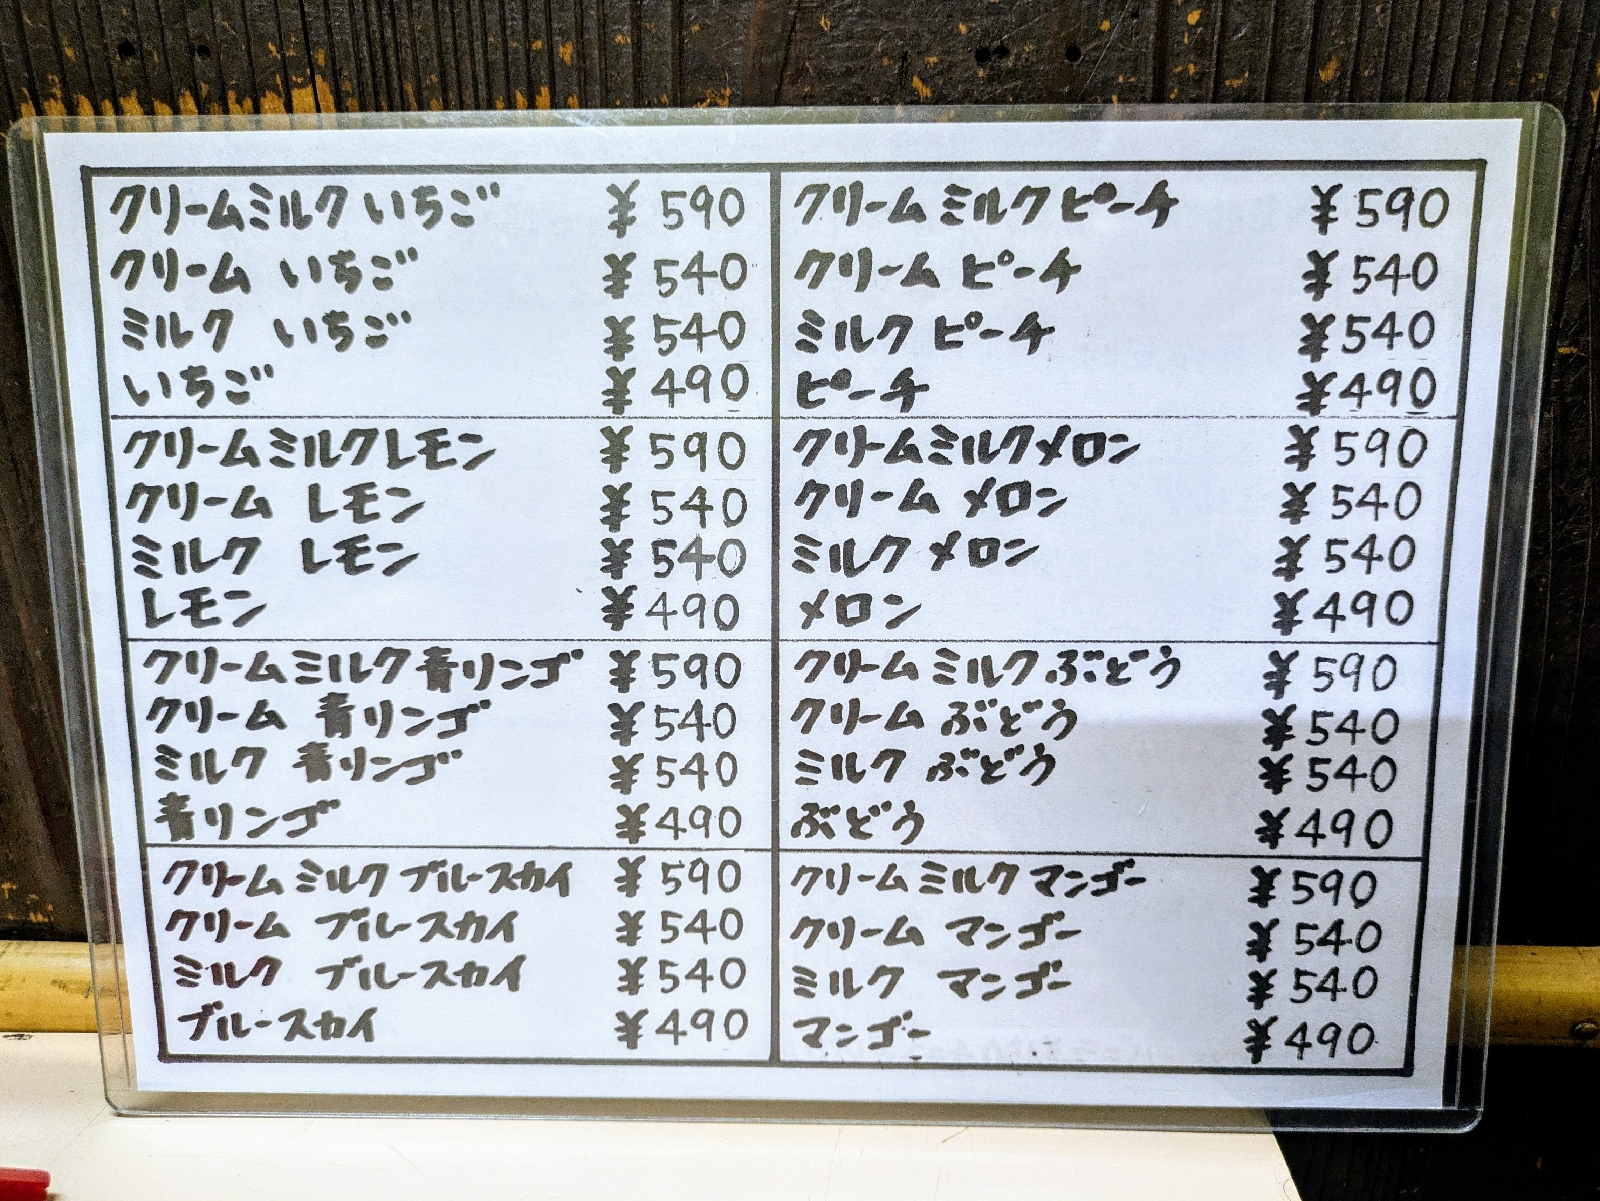 クリームミルクいちご ¥590
クリーム いちご ¥540
ミルク いちご ¥540
いちご ¥490
クリームミルクレモン ¥590
クリーム レモン ¥540
ミルク レモン ¥540
レモン ¥490
クリームミルク青リンゴ ¥590
クリーム 青リンゴ ¥540
ミルク 青リンゴ ¥540
青リンゴ ¥490
クリームミルクブルースカイ ¥590
クリーム ブルースカイ ¥540
ミルク ブルースカイ ¥540
ブルースカイ ¥490
クリームミルクピーチ ¥590
クリーム ピーチ ¥540
ミルクピーチ ¥540
ピーチ ¥490
クリームミルクメロン ¥590
クリーム メロン ¥540
ミルクメロン ¥540
メロン ¥490
クリームミルクぶどう ¥590
クリーム ぶどう ¥540
ミルク ぶどう ¥540
ぶどう ¥490
クリームミルクマンゴー ¥590
クリーム マンゴー ¥540
ミルク マンゴー ¥540
マンゴー ¥490